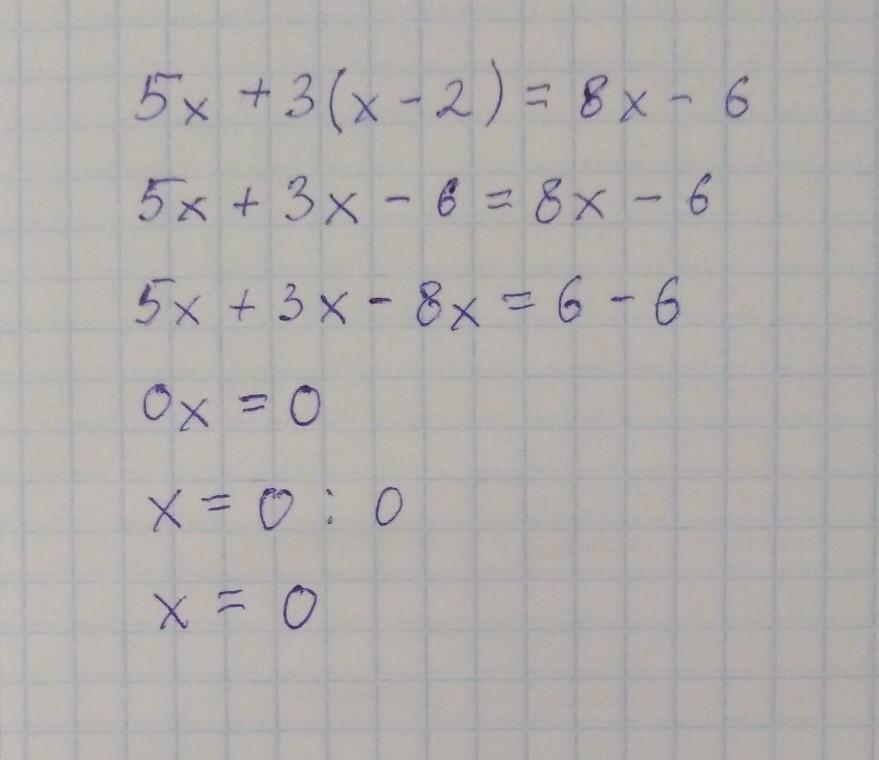 5x + 3(x - 2) = 8x - 6
5x + 3x - 6 = 8x - 6
5x + 3x - 8x = 6 - 6
0x = 0
x = 0 : 0
x = 0